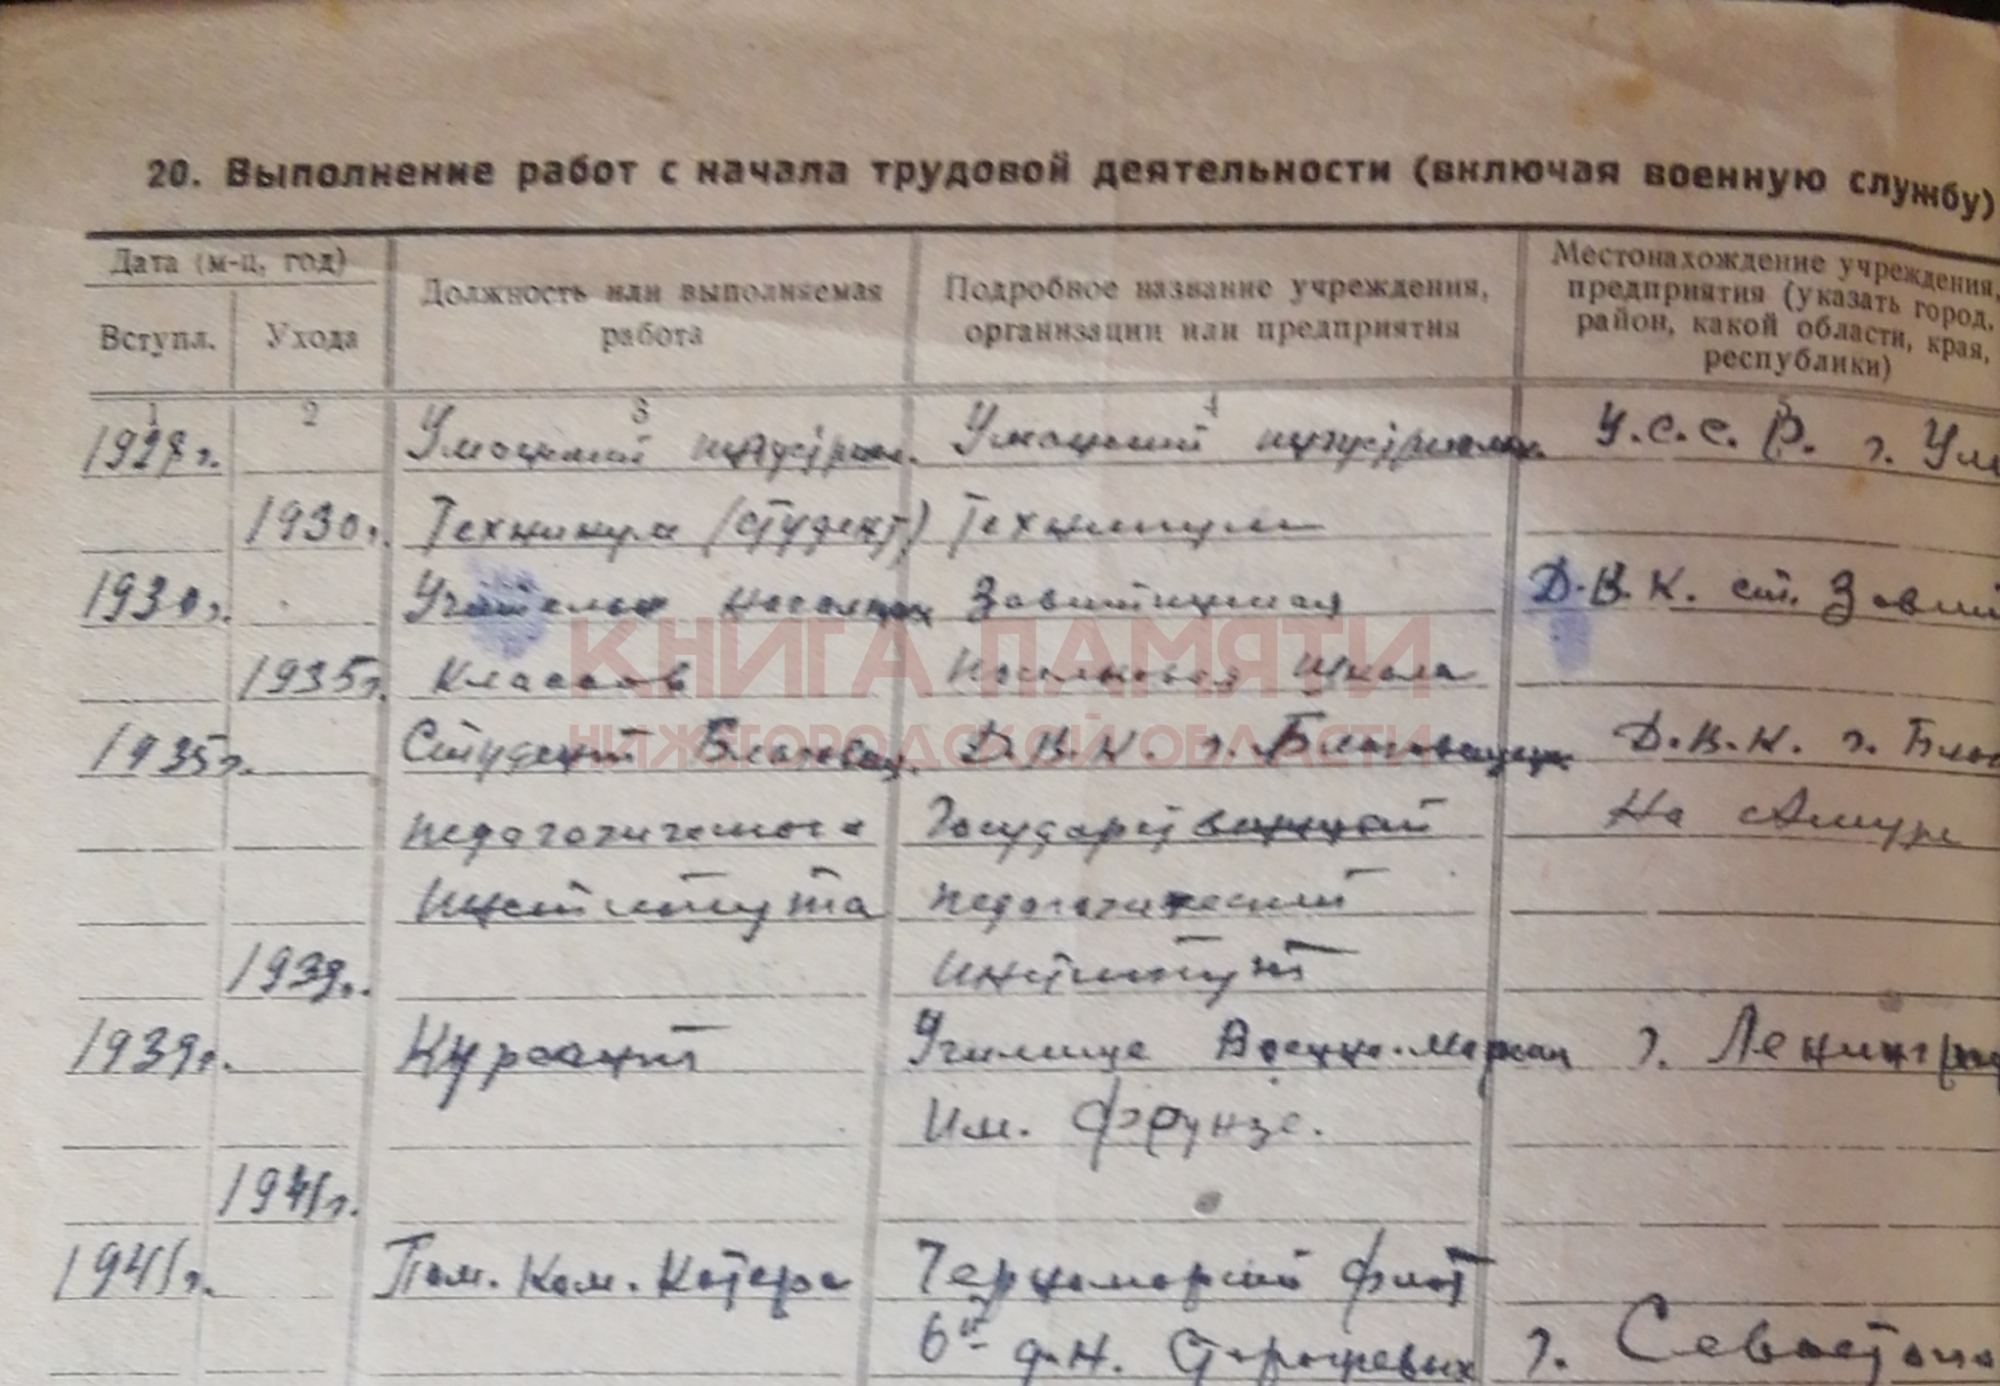 20. Выполнение работ с начала трудовой деятельности (включая военную службу)
Дата (м-ц, год)
Вступл.
Ухода
Должность или выполняемая
работа
Подробное название учреждения,
организации или предприятия
Местонахождение учреждения,
предприятия (указать город,
район, какой области, края,
республики)
1 2 3 4 5
1927г. Уманский индустриал. Уманский индустриальн. У.С.С.Р. г. Ум
1930г. Техникума (студент) Техникум
1930г. Учителем начальн Завитинская Д.В.К. ст. Завит
1935г. Классов Начальная школа
1935г. Студент Благовещ. Д.В.К. г. Благовещенск Д.В.К. г. Благ
педагогического Государственный На Амуре
Института педагогический
1939г. институт
1939г. Курсант Училище Военно-Морское г. Ленинград
Им. Фрунзе.
1941г.
1941г. Пом. Ком. Катера Черноморский флот
6й д-н. Сторожевых г. Севастопо
КНИГА ПАМЯТИ
НИЖЕГОРОДСКОЙ ОБЛАСТИ